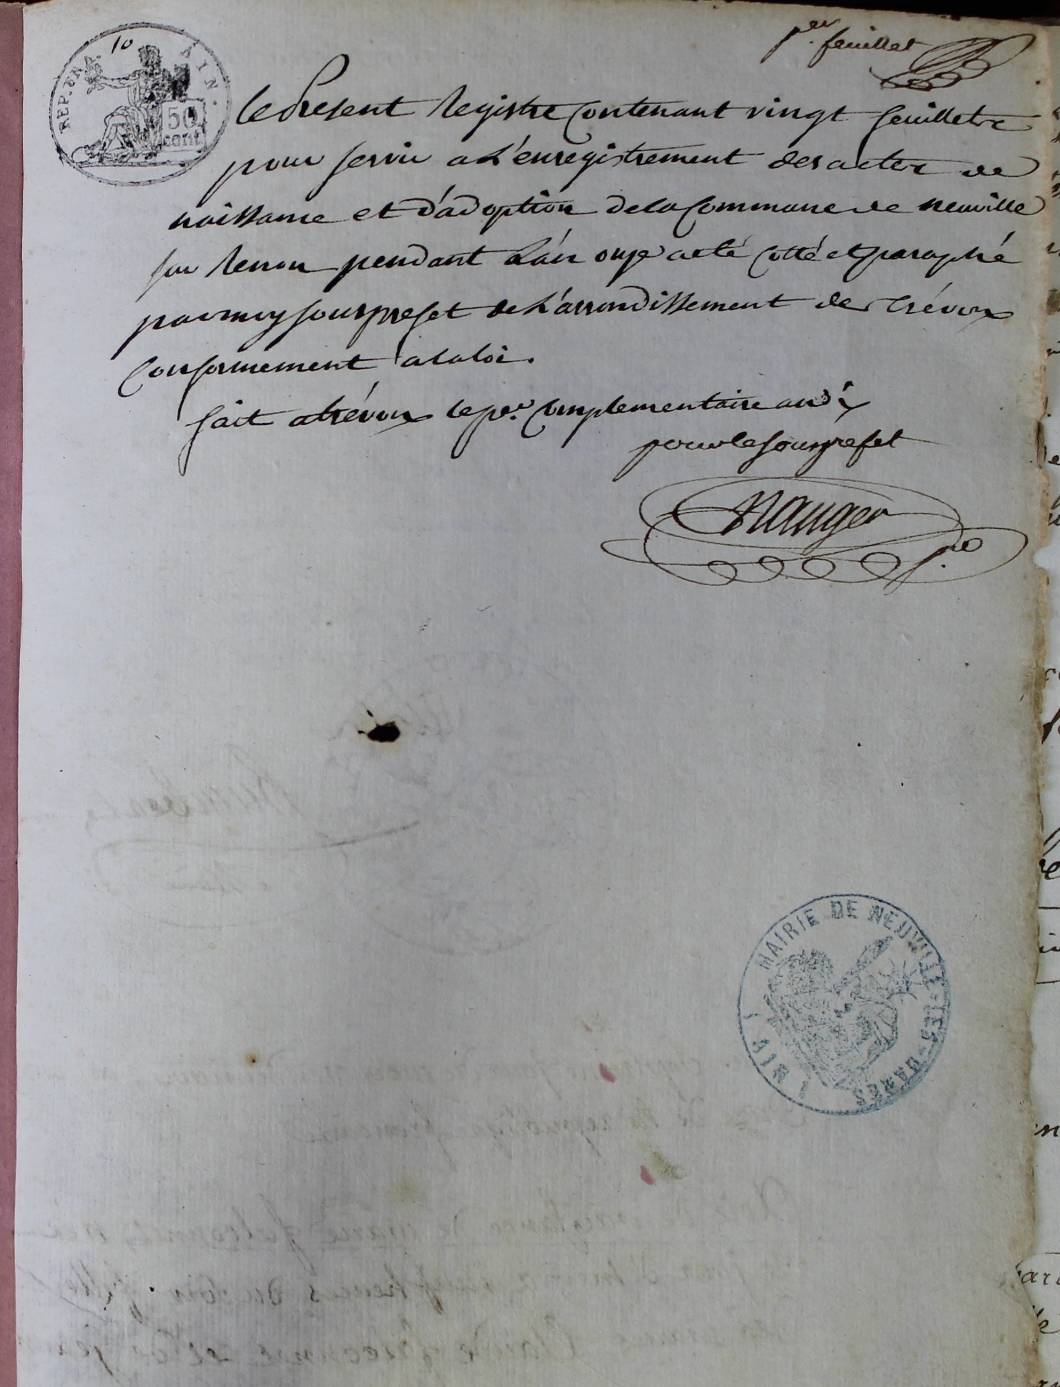 per. feuillet
10
REP. FRA. AIN.
50 cent.
Le Present Registre Contenant vingt feuilletz
pour servir a L'enregistrement des actes de
naissance et d'adoption de la Commune de Neuville
sur Renon pendant L'an onze a eté Cotté et paraphé
par moy sous prefet de L'arrondissement de Trévoux
Conformement a la loi.
fait a trévoux le per. Complementaire an dix
pour le sous prefet
MAIRIE DE NEUVILLE-LES-DAMES
(AIN)